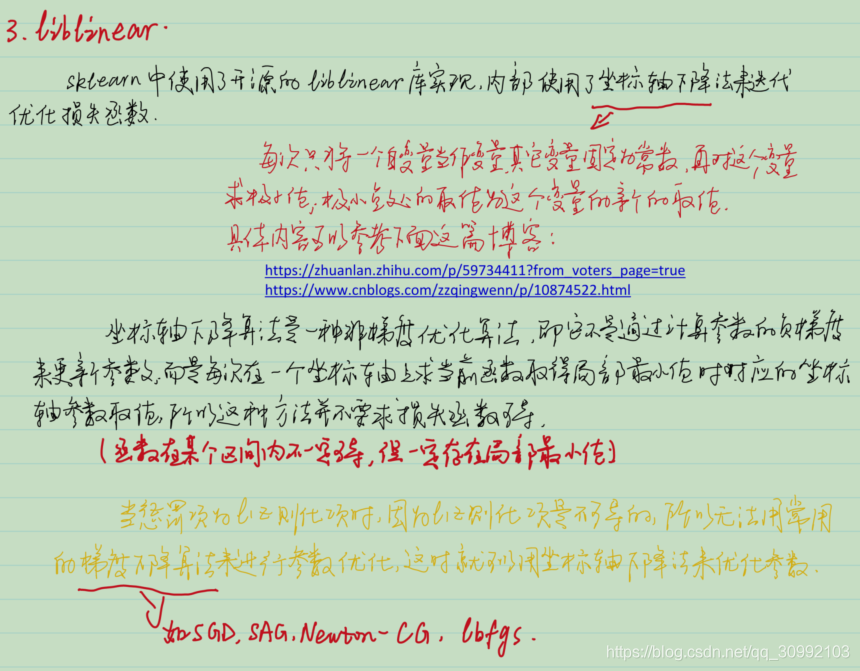 3. liblinear.
sklearn中使用了开源的liblinear库实现,内部使用了坐标轴下降法来迭代
优化损失函数.
每次只将一个自变量当作变量其它变量固定为常数,再对这个变量
求极小值,极小点处的取值为这个变量的新的取值.
具体内容可以参考下面这篇博客:
https://zhuanlan.zhihu.com/p/59734411?from_voters_page=true
https://www.cnblogs.com/zzqingwenn/p/10874522.html
坐标轴下降算法是一种非梯度优化算法,即它不是通过计算参数的负梯度
来更新参数,而是每次在一个坐标轴上求当前函数取得局部最小值时对应的坐标
轴参数取值,所以这种方法并不要求损失函数可导.
(函数在某个区间内不一定可导,但一定存在局部最小值)
当惩罚项为L1正则化项时,因为L1正则化项是不可导的,所以无法用常用
的梯度下降算法来进行参数优化,这时就可以用坐标轴下降法来优化参数.
如SGD, SAG, Newton-CG, lbfgs.
https://blog.csdn.net/qq_30992103